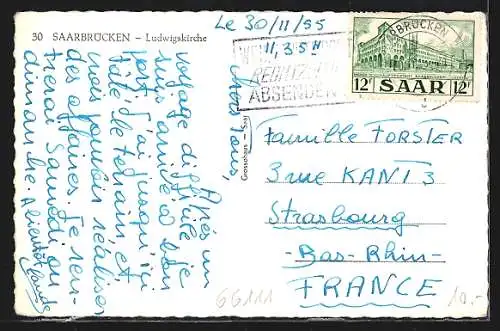 30 SAARBRÜCKEN – Ludwigskirche
Le 30/11/55
11,35H
ABSENDEN
SAARBRÜCKEN
12F SAAR 12F
Chers tous,
Après un
voyage difficile je
suis arrivé à bon
port. J'ai jusqu'ici
tâté le terrain, et
vais pouvoir réaliser
des affaires. Je ren-
trerai Samedi ou
dimanche. A bientôt
Famille FORSTER
3 rue KANT 3
Strasbourg
-Bas-Rhin-
FRANCE
66111
10.-